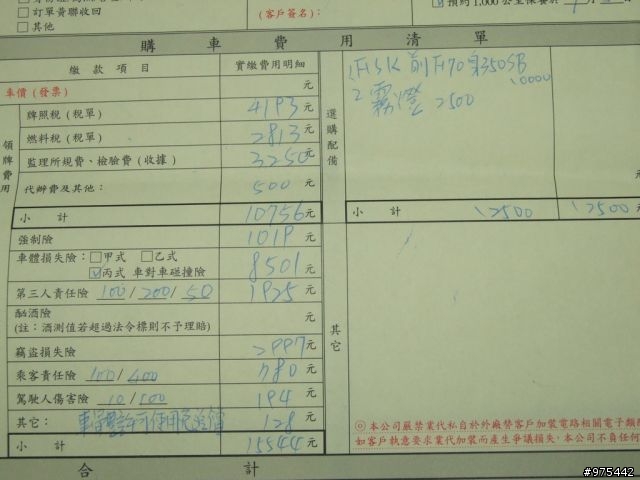 訂單黃聯收回
其他
(客戶簽名):
預約 1,000 公里保養於
購車費用清單
繳款項目 實繳費用明細
車價 (發票) 元
領牌費用
牌照稅 (稅單) 4193元
燃料稅 (稅單) 2813元
監理所規費、檢驗費 (收據) 3250元
代辦費及其他: 500 元
小計 10756元
強制險 1019元
車體損失險: 甲式 乙式
丙式 車對車碰撞險 8501元
第三人責任險 100/200/50 1925元
酗酒險
(註:酒測值若超過法令標則不予理賠) 元
竊盜損失險 2997元
乘客責任險 100/400 780元
駕駛人傷害險 10/100 194元
其它: 128元
小計 15544元
合計
選購配備
1. FISK 前F170 身350SB
10000
2 霧燈 2500
元
小計 12500 12500元
其它
◎本公司嚴禁業代私自於外廠替客戶加裝電路相關電子類
如客戶執意要求業代加裝而產生爭議損失,本公司不負任何
#975442